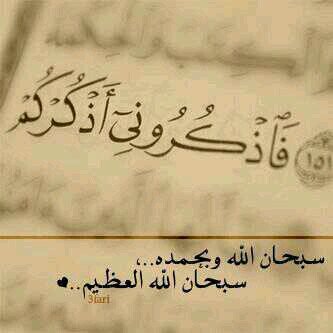 ١٥١ فَٱذْكُرُونِىٓ أَذْكُرْكُمْ
سبحان الله وبحمده..،
سبحان الله العظيم..♥
3iari